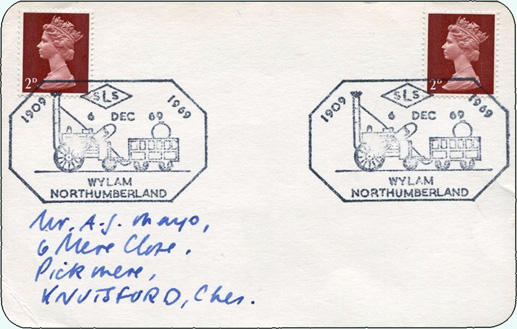 2D
2D
1909 SLS 1969
6 DEC 69
WYLAM
NORTHUMBERLAND
1909 SLS 1969
6 DEC 69
WYLAM
NORTHUMBERLAND
Mr. A.J. Mayo,
6 Mere Close.
Pickmere,
KNUTSFORD, Ches.